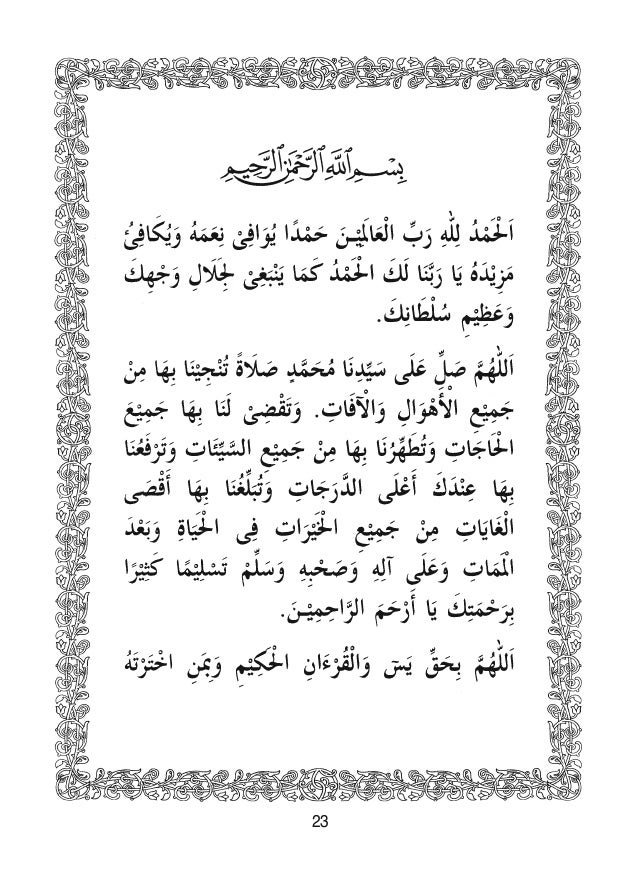 بِسْمِ اللهِ الرَّحْمٰنِ الرَّحِيْمِ
اَلْحَمْدُ لِلّٰهِ رَبِّ الْعَالَمِيْـنَ حَمْدًا يُوَافِىْ نِعَمَهُ وَيُكَافِئُ
مَزِيْدَهُ يَا رَبَّنَا لَكَ الْحَمْدُ كَمَا يَنْبَغِىْ لِجَلَالِ وَجْهِكَ
وَعَظِيْمِ سُلْطَانِكَ.
اَللّٰهُمَّ صَلِّ عَلَى سَيِّدِنَا مُحَمَّدٍ صَلَاةً تُنْجِيْنَا بِهَا مِنْ
جَمِيْعِ الْأَهْوَالِ وَالْآفَاتِ. وَتَقْضِىْ لَنَا بِهَا جَمِيْعَ
الْحَاجَاتِ وَتُطَهِّرُنَا بِهَا مِنْ جَمِيْعِ السَّيِّئَاتِ وَتَرْفَعُنَا
بِهَا عِنْدَكَ أَعْلَى الدَّرَجَاتِ وَتُبَلِّغُنَا بِهَا أَقْصَى
الْغَايَاتِ مِنْ جَمِيْعِ الْخَيْرَاتِ فِى الْحَيَاةِ وَبَعْدَ
الْمَمَاتِ وَعَلَى آلِهِ وَصَحْبِهِ وَسَلِّمْ تَسْلِيْمًا كَثِيْرًا
بِرَحْمَتِكَ يَا أَرْحَمَ الرَّاحِمِيْـنَ.
اَللّٰهُمَّ بِحَقِّ يٓسٓ وَالْقُرْءَانِ الْحَكِيْمِ وَبِمَنِ اخْتَرْتَهُ
23